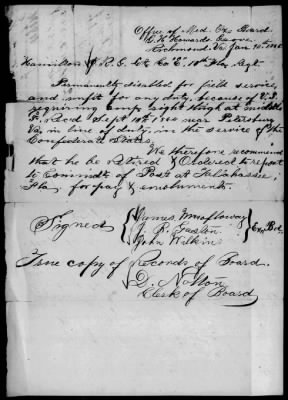 Office of Med. Ex Board
Howards Grove
Richmond Va Jan 10. 1865
Hamilton R. G. Co "E" 10th Fla Regt.
Permanently disabled for field service,
and unfit for any duty, because of V.S.
requiring amp. right thigh at middle
Recd Sept 10th 1864 near Petersburg
Va in line of duty, in the service of the
Confederate States.
We therefore recommend
that he be retired & ordered to report
to Commdt of Post at Talahassee,
Fla, for pay & emoluments.
Signed
James
J. R. Gaston Ex. Bd.
John Wilkins
True copy of Records of Board.
D. Notton
Clerk of Board